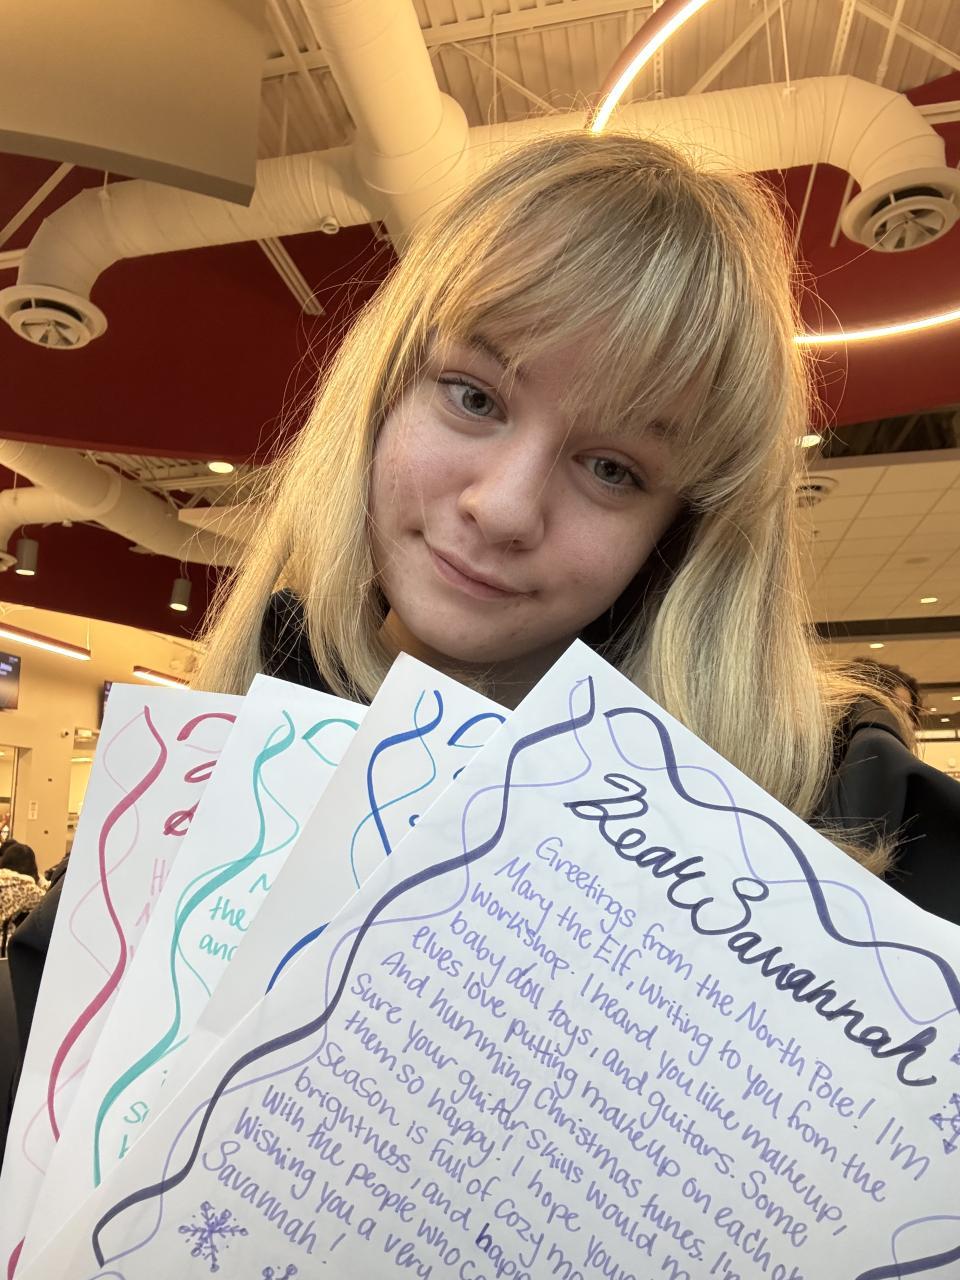 Dear Savannah
Greetings from the North Pole! I'm
Mary the Elf, writing to you from the
workshop. I heard you like makeup,
baby doll toys, and guitars. Some
elves love putting makeup on each
And humming Christmas tunes. I'm
Sure your guitar skills would
them so happy! I hope your
Season is full of cozy
brightness, and
With the people who
Wishing you a very
Savannah!
the
and